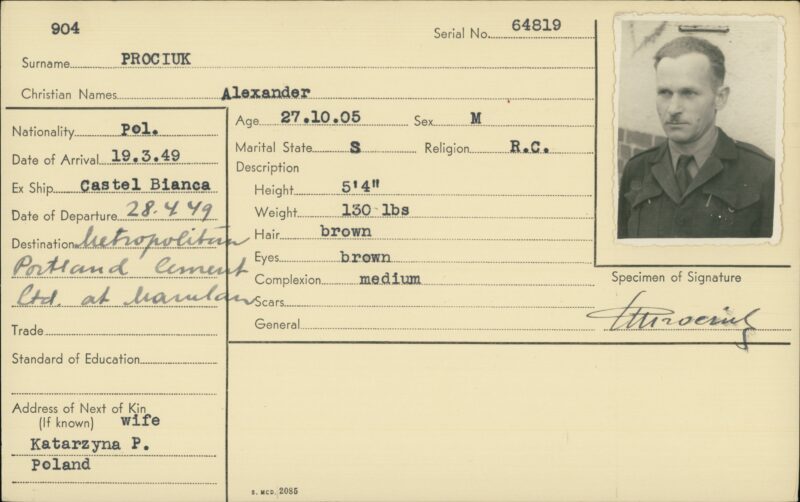 904
Serial No. 64819
Surname PROCIUK
Christian Names Alexander
Nationality Pol.
Date of Arrival 19.3.49
Ex Ship Castel Bianca
Date of Departure 28.4.49
Destination Metropolitan
Portland Cement
Ltd. at Marulan
Trade
Standard of Education
Address of Next of Kin
(If known) wife
Katarzyna P.
Poland
Age 27.10.05 Sex M
Marital State S Religion R.C.
Description
Height 5'4"
Weight 130 lbs
Hair brown
Eyes brown
Complexion medium
Scars
General
Specimen of Signature
S. MCD. 2085